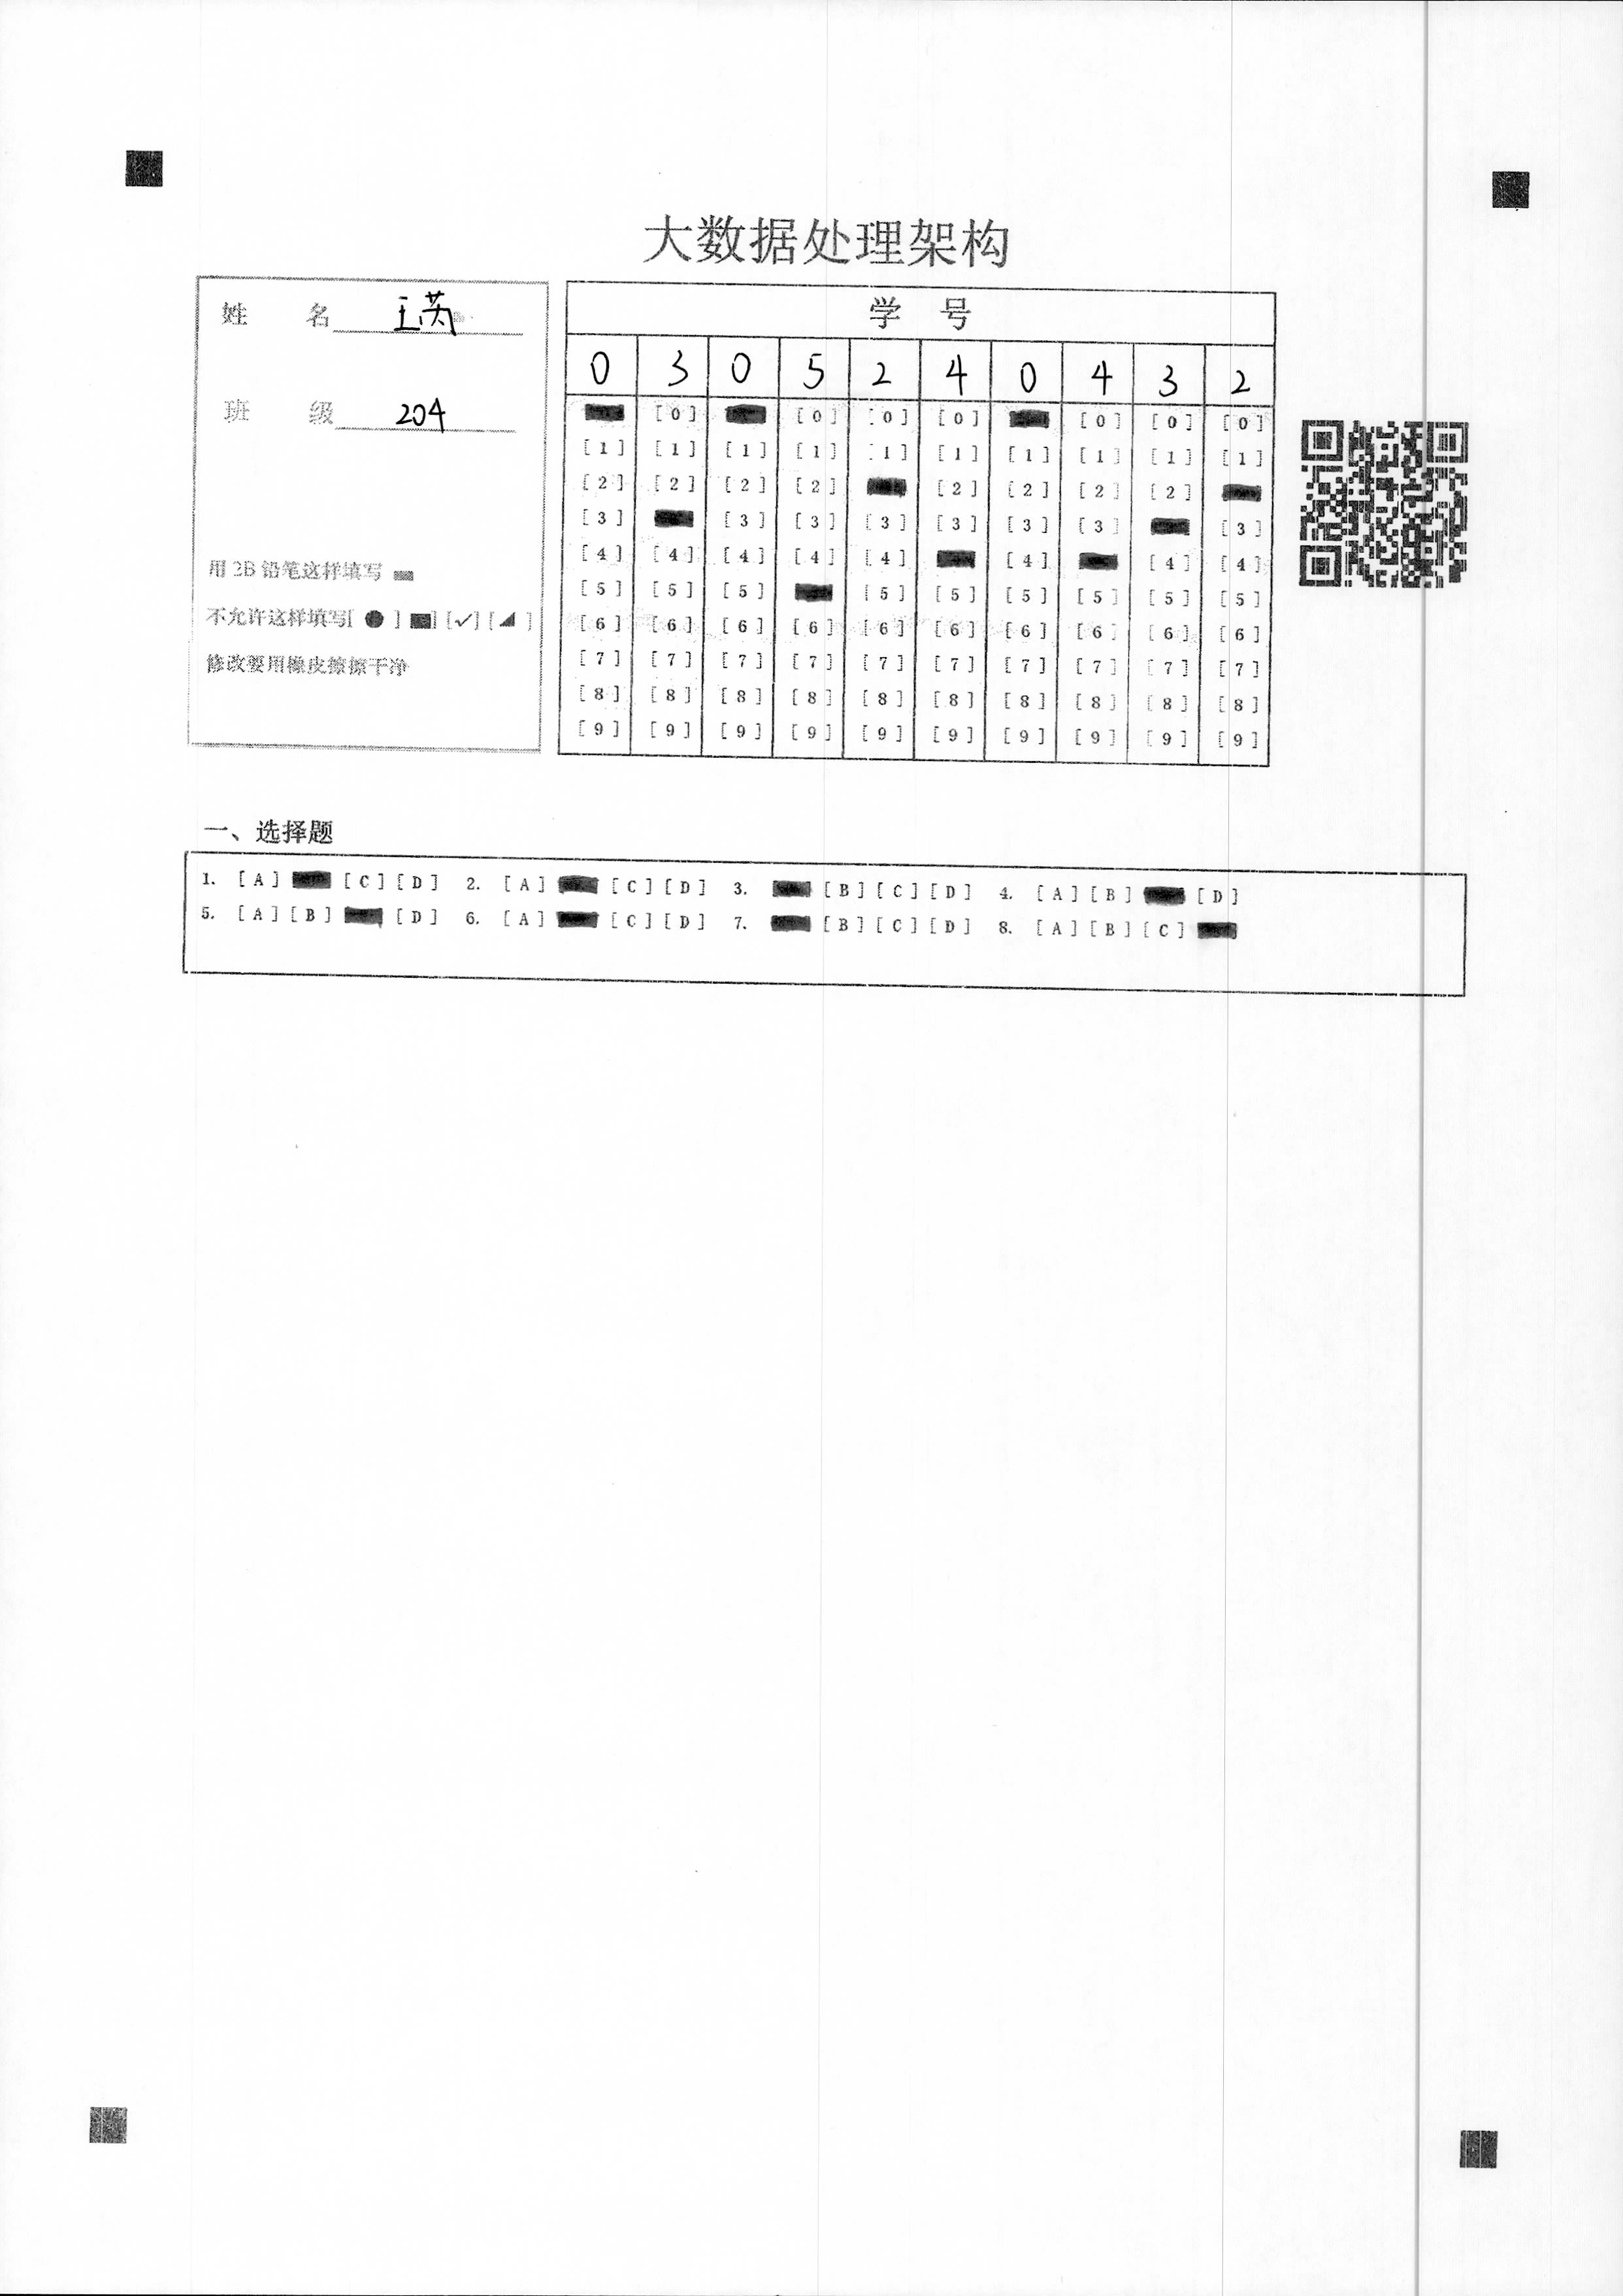 大数据处理架构
姓 名 王芮
班 级 204
用 2B 铅笔这样填写
不允许这样填写[ ● ] [■] [✓] [◢ ]
修改要用橡皮擦擦干净
学 号
0 3 0 5 2 4 0 4 3 2
[0] [0] [0] [0] [0] [0] [0]
[1] [1] [1] [1] [1] [1] [1] [1] [1] [1]
[2] [2] [2] [2] [2] [2] [2] [2]
[3] [3] [3] [3] [3] [3] [3] [3]
[4] [4] [4] [4] [4] [4] [4] [4]
[5] [5] [5] [5] [5] [5] [5] [5] [5]
[6] [6] [6] [6] [6] [6] [6] [6] [6] [6]
[7] [7] [7] [7] [7] [7] [7] [7] [7] [7]
[8] [8] [8] [8] [8] [8] [8] [8] [8] [8]
[9] [9] [9] [9] [9] [9] [9] [9] [9] [9]
一、选择题
1. [A] [C] [D] 2. [A] [C] [D] 3. [B] [C] [D] 4. [A] [B] [D]
5. [A] [B] [D] 6. [A] [C] [D] 7. [B] [C] [D] 8. [A] [B] [C]